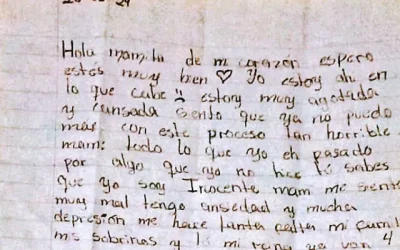 Hola mamita de mi corazón espero
estés muy bien ♡ Yo estoy ahi en
lo que cabe estoy muy agotada
y cansada siento que ya no puedo
más con este proceso tan horrible
mami todo lo que yo eh pasado
por algo que yo no hice tú sabes
que yo soy Inocente mam me siento
muy mal tengo ansiedad y mucha
depresión me hace tanta falta mi
mis sobrinas y tú mi reyna ya van 4